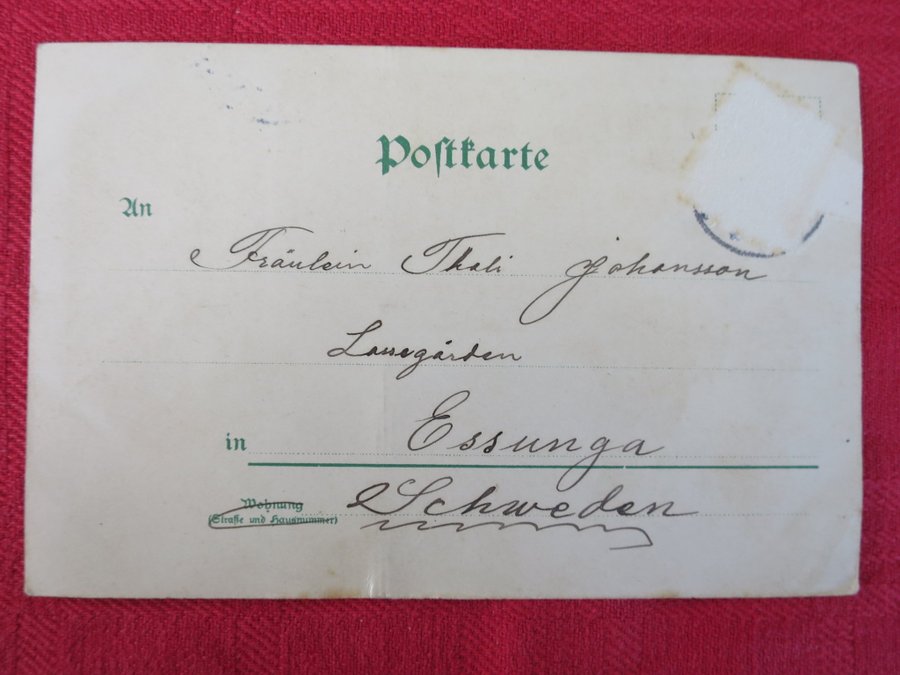 Postkarte
An
Fräulein Thali Johansson
Lassegården
in Essunga
Wohnung
(Straße und Hausnummer)
Schweden